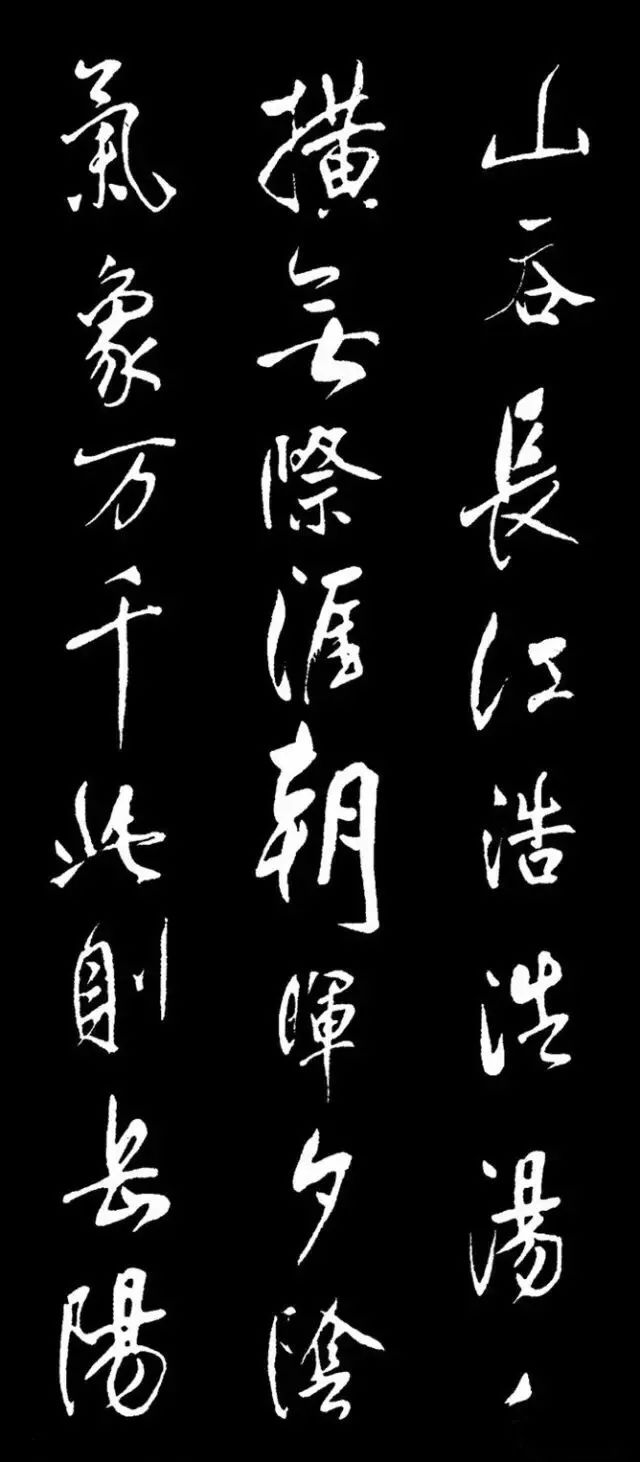 山吞長江浩浩湯、
横無際涯朝暉夕陰
氣象万千此則岳陽